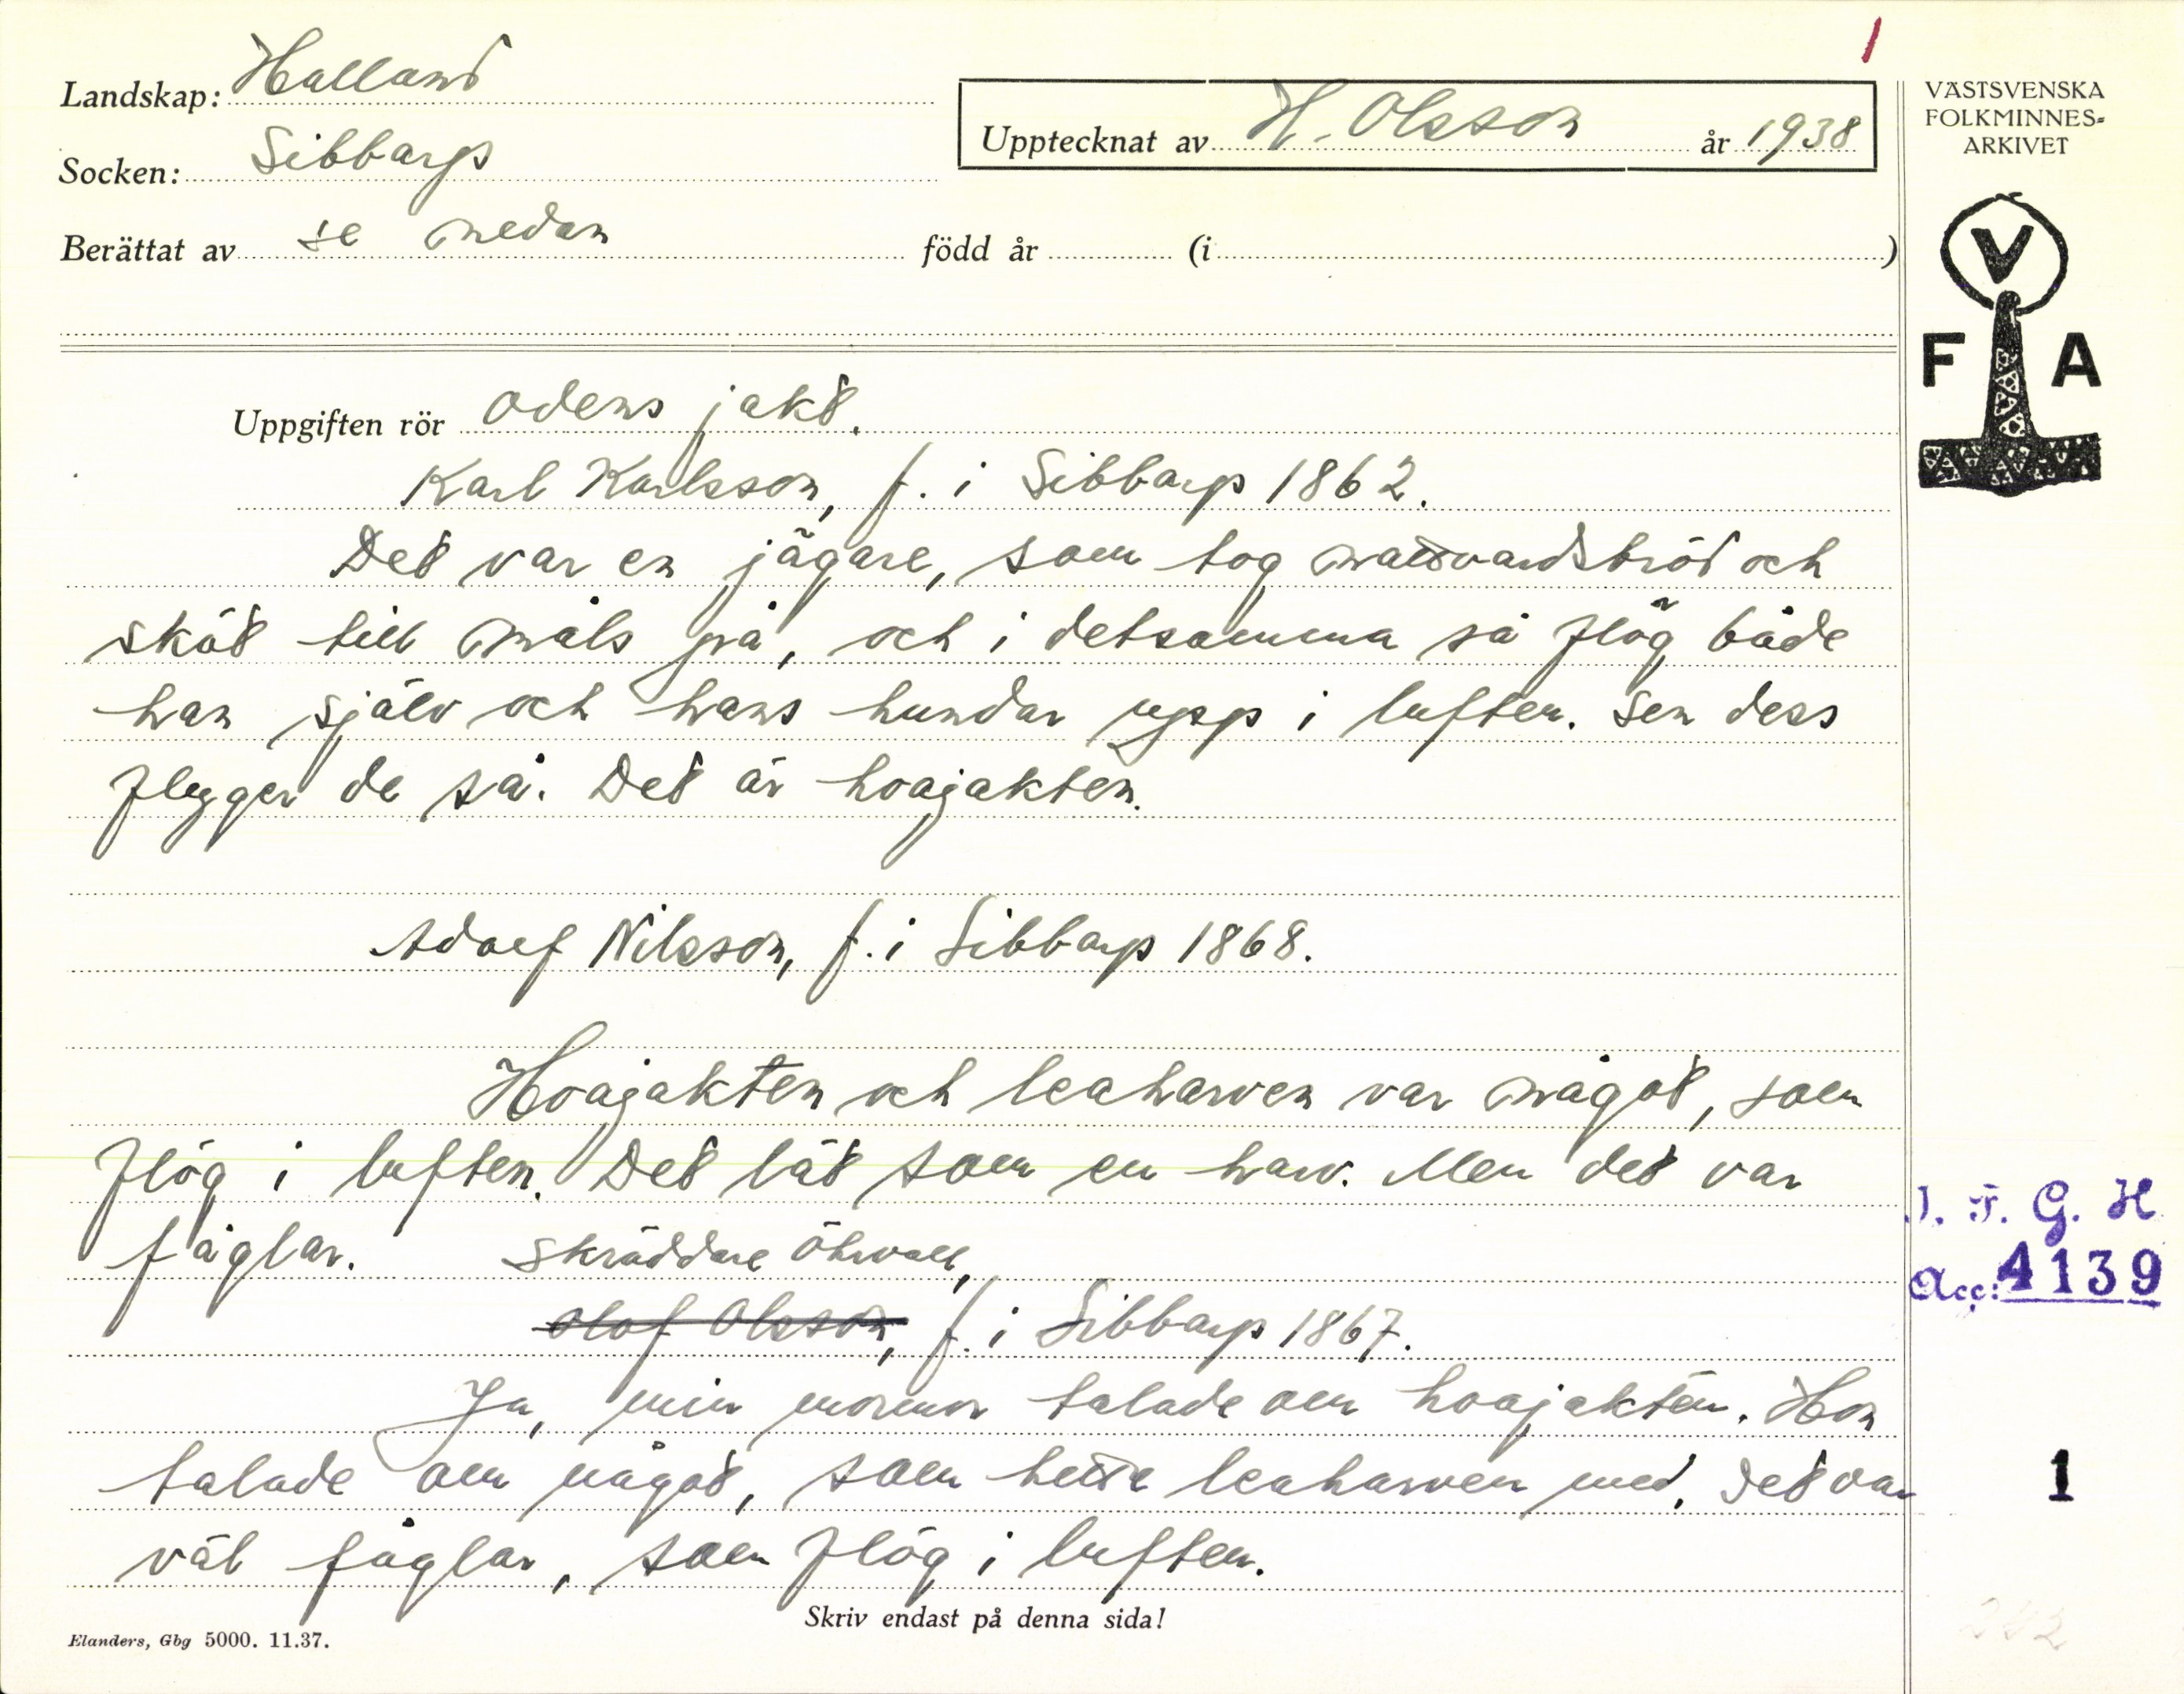 1
Landskap: Halland
Socken: Sibbarp
Upptecknat av H. Olsson år 1938
Berättat av se nedan född år (i )
VÄSTSVENSKA
FOLKMINNES-
ARKIVET
V
F A
Uppgiften rör Odens jakt.
Karl Karlsson, f. i Sibbarp 1862.
Det var en jägare, som tog nattvardsbröd och
sköt till måls på, och i detsamma så flög både
han själv och hans hundar upp i luften. Sen dess
flyger de så. Det är hoajakten.
Adolf Nilsson, f. i Sibbarp 1868.
Hoajakten och leaharven var något, som
flög i luften. Det lät som en harv. Men det var
fåglar. Skräddare Öhrvall,
Olof Olsson, f. i Sibbarp 1867.
Ja, min mormor talade om hoajakten. Hon
talade om något, som hette leaharven med. Det var
väl fåglar, som flög i luften.
I. F. G. H
Acc: 4139
1
Skriv endast på denna sida!
Elanders, Gbg 5000. 11.37.